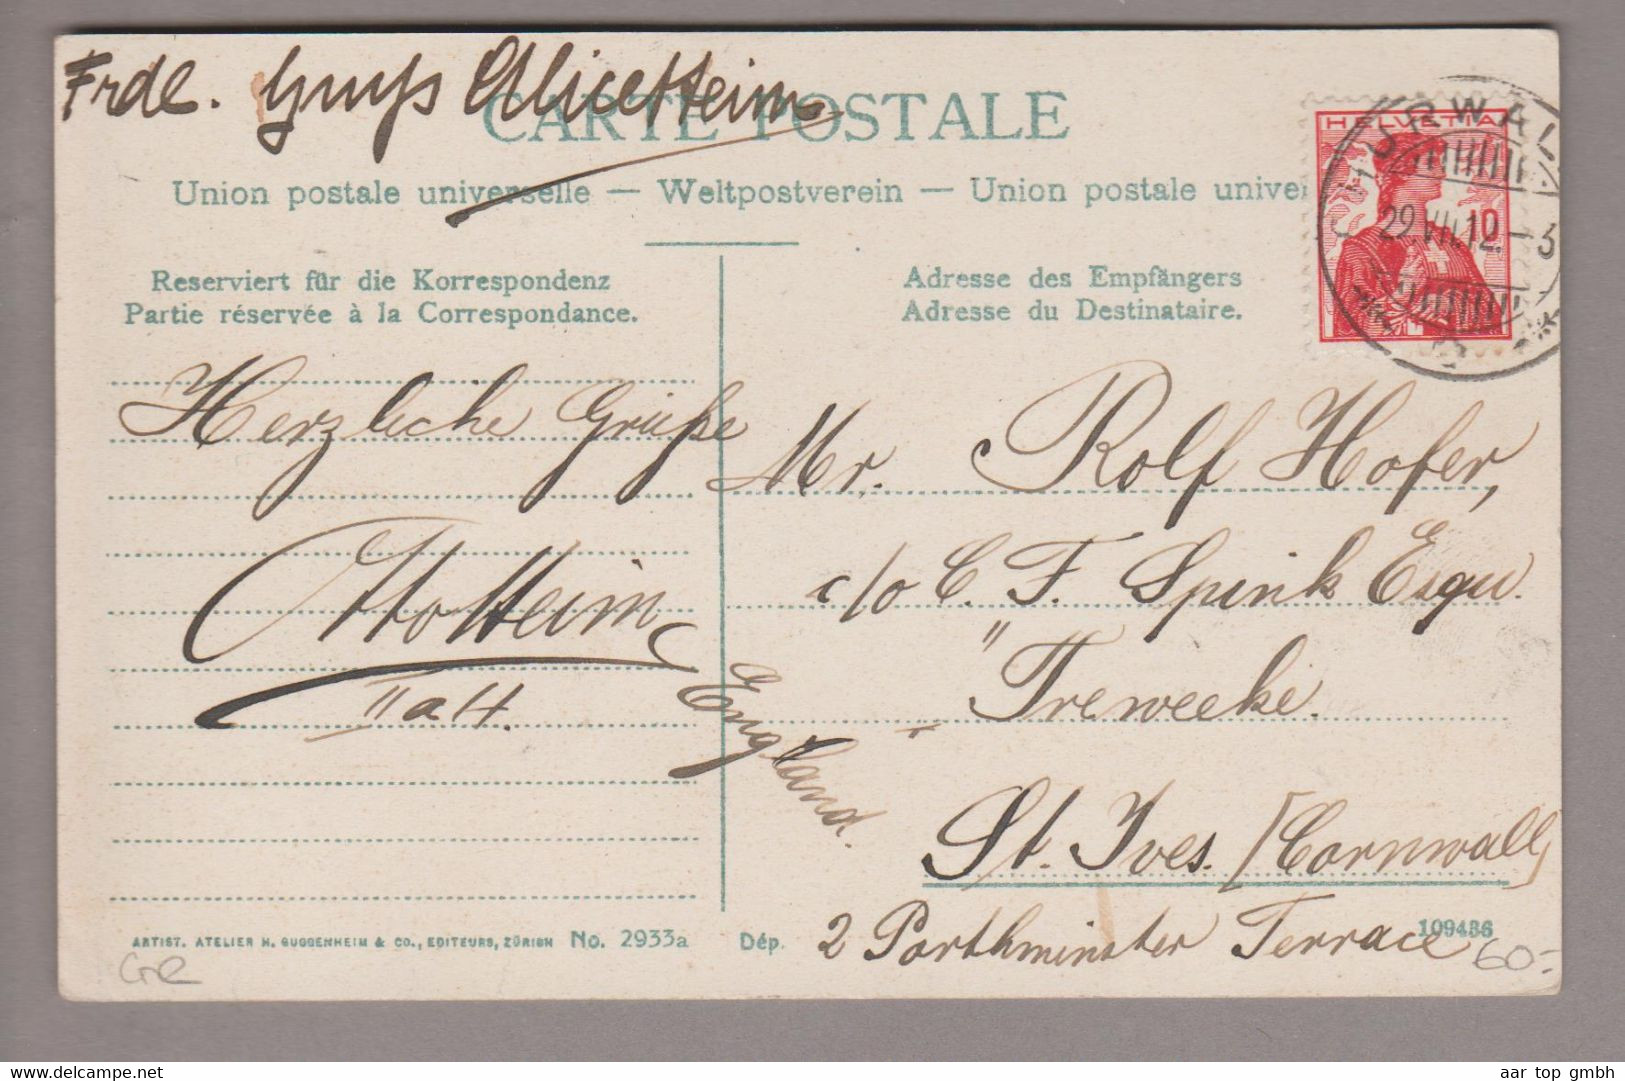 Frdl. Gruss Alice Heim
CARTE POSTALE
Union postale universelle — Weltpostverein — Union postale univer
Reserviert für die Korrespondenz
Partie réservée à la Correspondance.
Adresse des Empfängers
Adresse du Destinataire.
HELVETIA
10
29.VII.12.–3
Herzliche Grüße
Otto Heim
II a H.
Mr. Rolf Hofer,
c/o C. F. Spink Esqu.
"Treweeke.
St. Ives. [Cornwall]
England.
2 Porthminster Terrace
ARTIST. ATELIER H. GUGGENHEIM & CO., EDITEURS, ZÜRICH No. 2933a
Dép. 109436
60.-
aar top gmbh